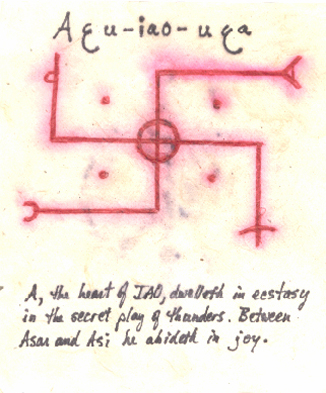 Aɛu-iao-uɛa
A, the heart of IAO, dwelleth in ecstasy
in the secret play of thunders. Between
Asar and Asi he abideth in joy.